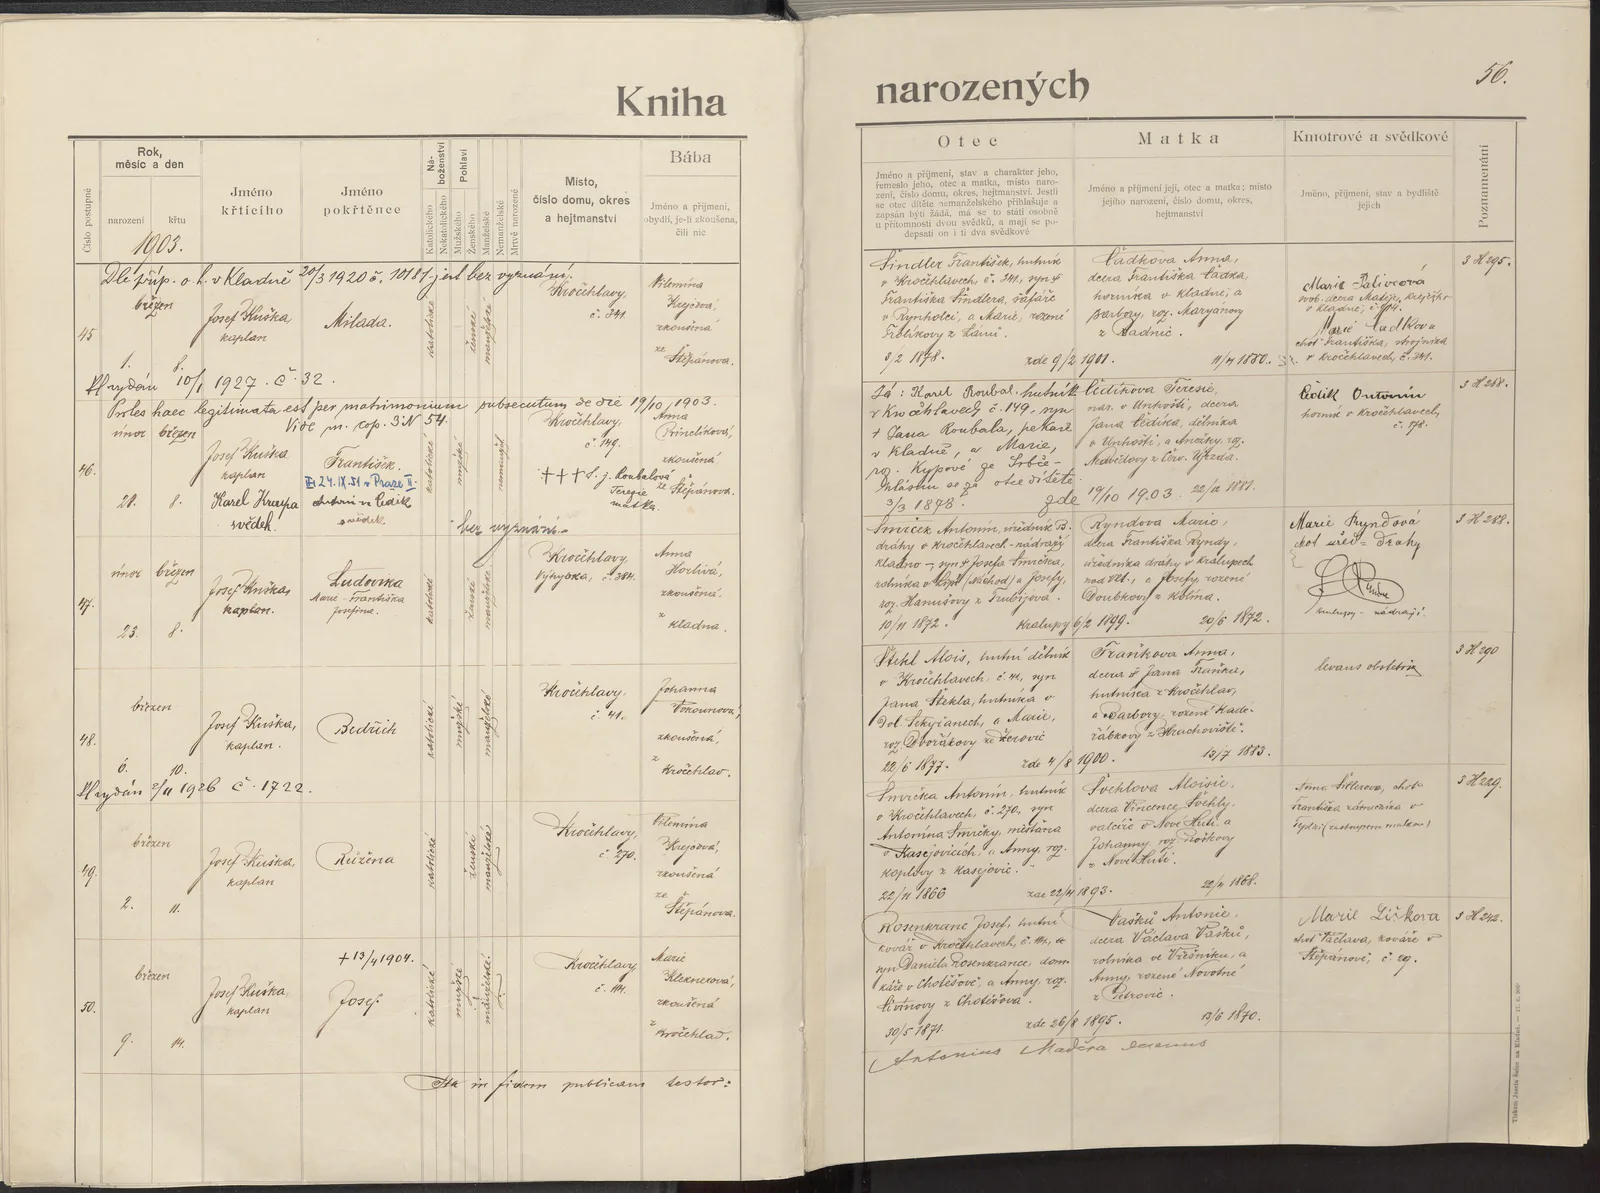 Kniha
narozených
56.
Číslo postupné
Rok,
měsíc a den
narození
křtu
Jméno
křtícího
Jméno
pokřtěnce
Ná-
boženství
Katolického
Nekatolického
Pohlaví
Mužského
Ženského
Manželské
Nemanželské
Mrtvě narozené
Místo,
číslo domu, okres
a hejtmanství
Bába
Jméno a příjmení,
obydlí, je-li zkoušena,
čili nic
Otec
Jméno a příjmení, stav a charakter jeho,
řemeslo jeho, otec a matka, místo naro-
zení, číslo domu, okres, hejtmanství. Jestli
se otec dítěte nemanželského přihlašuje a
zapsán býti žádá, má se to státi osobně
u přítomnosti dvou svědků, a mají se po-
depsati on i ti dva svědkové
Matka
Jméno a příjmení její, otec a matka; místo
jejího narození, číslo domu, okres,
hejtmanství
Kmotrové a svědkové
Jméno, příjmení, stav a bydliště
jejich
Poznamenání
1903.
Dle příp. o. h. v Kladně 20/3 1920 č. 10181 jest bez vyznání.
45
březen
1. 8.
Josef Kuška,
kaplan
Milada.
katolické
ženské
manželské
Kročehlavy,
č. 341.
Vilemína
Krejčová,
zkoušená
ze
Štěpánova.
Šindler František, hutník
v Kročehlavech, č. 341, syn
Františka Šindlera, šafáře
v Rynholci, a Marie, rozené
z Lán.
3/2 1878. zde 9/2 1901.
Čadkova Anna,
dcera Františka Čadka,
horníka v Kladně, a
Barbory, roz. Maryánovy
z Radnic.
11/4 1880.
Marie Palivcová
svob. dcera Matěje, krejčího
v Kladně, č.
Marie Čadkova
choť Františka, strojníka
v Kročehlavech, č. 341.
3 H 295.
KL vydán 10/1 1927. č. 32.
Proles haec legitimata est per matrimonium subsecutum de die 19/10 1903.
Vide m. cop. 3 N 54.
46.
únor březen
28. 8.
Josef Kuška
kaplan
Karel Kraupa
svědek.
František.
24. IX. 51 v Praze II.
Antonín Čedík
svědek
katolické
mužské
nemanžel.
Kročehlavy,
č. 149.
††† S. j. Roubalová
Terezie
matka.
Anna
Princlíková,
zkoušená
ze
Štěpánova.
Já: Karel Roubal, hutník
v Kročehlavech č. 149, syn
† Jana Roubala, pekaře
v Kladně, a Marie,
roz. Kypové ze Srbče-
hlásím se za otce dítěte
3/3 1878. zde 19/10 1903.
Čedíkova Terezie,
nar. v Unhošti, dcera
Jana Čedíka, dělníka
v Unhošti, a Anežky, roz.
z Červ. Újezda.
1881.
Čedík Antonín
horník v Kročehlavech,
č. 178.
3 H 268.
bez vyznání.
47.
únor březen
23. 8.
Josef Kuška,
kaplan.
Ludovika
Marie Františka
Josefina.
katolické
ženské
manželské.
Kročehlavy
Vyhybka, č. 384.
Anna
Horlivá,
zkoušená
z
Kladna.
Smrček Antonín, úředník B.
dráhy v Kročehlavech-nádraží
Kladno – syn † Josefa Smrčka,
rolníka v Lípě (Náchod) a Josefy,
roz. Hanušovy z Trubijova.
10/11 1872. Kralupy 6/2 1899.
Ryndova Marie,
dcera Františka Ryndy,
úředníka dráhy v Kralupech
nad Vlt., a Josefy, rozené
Doubkovy z Kolína.
20/6 1872.
Marie Ryndová
choť úřed. dráhy
Kralupy - nádraží.
3 H 288.
48.
březen
6. 10.
Josef Kuška,
kaplan.
Bedřich
katolické
mužské
manželské
Kročehlavy,
č. 41.
Johanna
Vokounová,
zkoušená,
z
Kročehlav.
Štekl Alois, hutní dělník
v Kročehlavech č. 41, syn
Jana Štekla, hutníka v
Dol. Sekyřanech, a Marie,
roz. Dvořákovy ze Žerovic
22/6 1877. zde 4/8 1900.
Fraňkova Anna,
dcera † Jana Fraňka,
hutníka z Kročehlav,
a Barbory, rozené Kade-
řábkovy z Hrachoviště.
13/7 1883.
levans obstetrix
3 H 290
KL vydán 2/11 1926 č. 1722.
49.
březen
2. 11.
Josef Kuška,
kaplan
Růžena
katolické
ženské
manželské
Kročehlavy,
č. 270.
Vilemína
Krejčová,
zkoušená
ze
Štěpánova.
Smrčka Antonín, hutník
v Kročehlavech, č. 270, syn
Antonína Smrčky, měšťana
v Kasejovicích, a Anny, roz.
z Kasejovic.
22/11 1866 zde 22/4 1893.
Švehlova Aloisie,
dcera Vincence Švehly,
valcíře v Nové Huti, a
Johanny, roz.
z Nové Huti.
22/4 1868.
Anna choť
Františka zámečníka v
(zastupem matkou)
3 H 229.
50.
březen
9. 14.
Josef Kuška,
kaplan
† 13/4 1904.
Josef.
katolické
mužské
manželské.
Kročehlavy
č. 114.
Marie
Kleknerová,
zkoušená
z
Kročehlav.
Rosenkranc Josef, hutní
kovář v Kročehlavech, č. 114,
syn Daniela Rosenkrance, dom-
káře v Chotěšově, a Anny, roz.
z Chotěšova.
30/5 1871. zde 26/8 1895.
Vašků Antonie,
dcera Václava Vašků,
rolníka ve Všešníku, a
Anny, rozené Novotné
z Petrovic.
13/6 1870.
Marie Liškova
choť Václava, kováře v
Štěpánově, č. 29.
3 H 242.
Ita in fidem publicam testor:
Antonius Maděra decanus